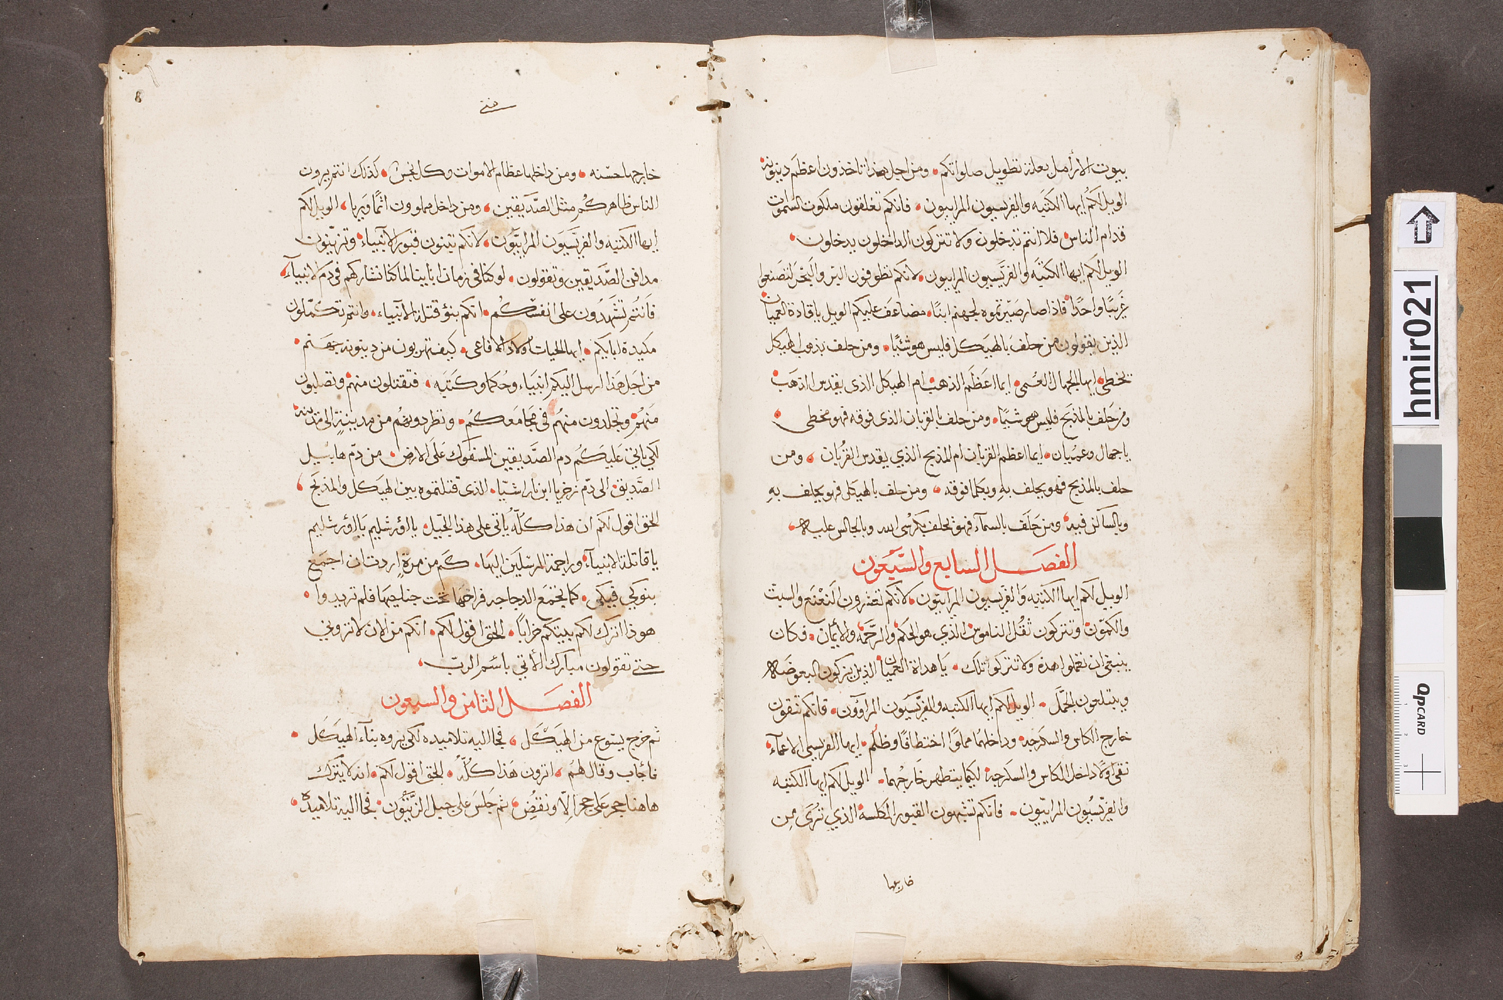 بيوت الارامل بعلة تطويل صلواتكم ومن اجل هذا تاخذون اعظم دينونه
الويل لكم ايها الكتبه والفريسيون المراييون فانكم تغلقون ملكوت السموات
قدام الناس فلا انتم تدخلون ولا تتركون الداخلون يدخلون
الويل لكم ايها الكتبه والفريسيون المراييون لانكم تطوفون البر والبحر لتصنعوا
غريبًا واحدًا فاذا صار صيرتموه لجهنم ابنًا مضاعف عليكم الويل يا قادة العميان
الذين يقولون من حلف بالهيكل فليس هو شيًا ومن حلف بذهب الهيكل
يخطى ايها الجهال العمى ايما اعظم الذهب ام الهيكل الذى يقدس الذهب
ومن حلف بالمذبح فليس هو شيًا ومن حلف بالقربان الذى فوقه فهو مخطى
يا جهال وعميان ايما اعظم القربان ام المذبح الذي يقدس القربان ومن
حلف بالمذبح فهو يحلف به وبكلما فوقه ومن حلف بالهيكل فهو يحلف به
وبالساكن فيه ومن حلف بالسماء فهو يحلف بكرسى الله وبالجالس عليه
الفصل السابع والسبعون
الويل لكم ايها الكتبه والفريسيون المراييون لانكم تعشرون النعنع والسبت
والكمون وتتركون ثقل الناموس الذى هو الحكم والرحمه والايمان فكان
ينبغى ان تعملوا هذه ولا تتركوا تلك يا هداة العميان الذين يتركون البعوضه
ويبتلعون الجمل الويل لكم ايها الكتبه والفريسيون المراؤون فانكم تنقون
خارج الكاس والسكرجه وداخلهما مملوًا اختطافًا وظلم ايها الفريسي الاعماء
نقى اولًا داخل الكاس والسكرجه ليكما يتطهر خارجهما الويل لكم ايها الكتبه
والفريسيون المراييون فانكم تشبهون القبور المكلسه الذي تُرى من
خارجها
خارجها حسنه ومن داخلها عظام الاموات وكل نجس كذلك انتم يرون
الناس ظاهركم مثل الصديقين ومن داخل مملوون اثمًا وريا الويل لكم
ايها الكتبه والفريسيون المراييون لانكم تبنون قبور الانبياء وتزينون
مدافن الصديقين وتقولون لو كنا في زمان ابايينا لما كنا نشاركهم في دم الانبياء
فانتم تشهدون على انفسكم انكم بنو قتلة الانبياء وانتم تكملون
مكيدة ابايكم ايها الحيات اولاد الافاعى كيف تهربون من دينونة جهنم
من اجل هذا ارسل اليكم انبياء وحكما وكتبه فتقتلون منهم وتصلبون
منهم وتجلدون منهم في مجامعكم وتطردونهم من مدينةٍ الى مدينه
لكي ياتي عليكم دم الصديقين المسفوك على الارض من دم هابيل
الصديق الى دم زخريا ابن باراشيا الذى قتلتموه بين الهيكل والمذبح
الحق اقول لكم ان هذا كله ياتى على هذا الجيل يااورشليم يااورشليم
يا قاتلة الانبياء وراجمة المرسلين اليها كم من مرةٍ اردت ان اجمع
بنوكي فيكى كما تجمع الدجاجه فراخها تحت جناحيها فلم تريدوا
هوذا اترك لكم بيتكم خرابًا الحق اقول لكم انكم من الان لا ترونى
حتى تقولون مبارك الاتي باسم الرب
الفصل الثامن والسبعون
ثم خرج يسوع من الهيكل فجا اليه تلاميذه لكى يروه بناء الهيكل
فاجاب وقال لهم اترون هذا كله الحق اقول لكم انه لا يترك
هاهنا حجر على حجر الا ونقض ثم جلس على جبل الزيتون فجا اليه تلاميذه
hmir021